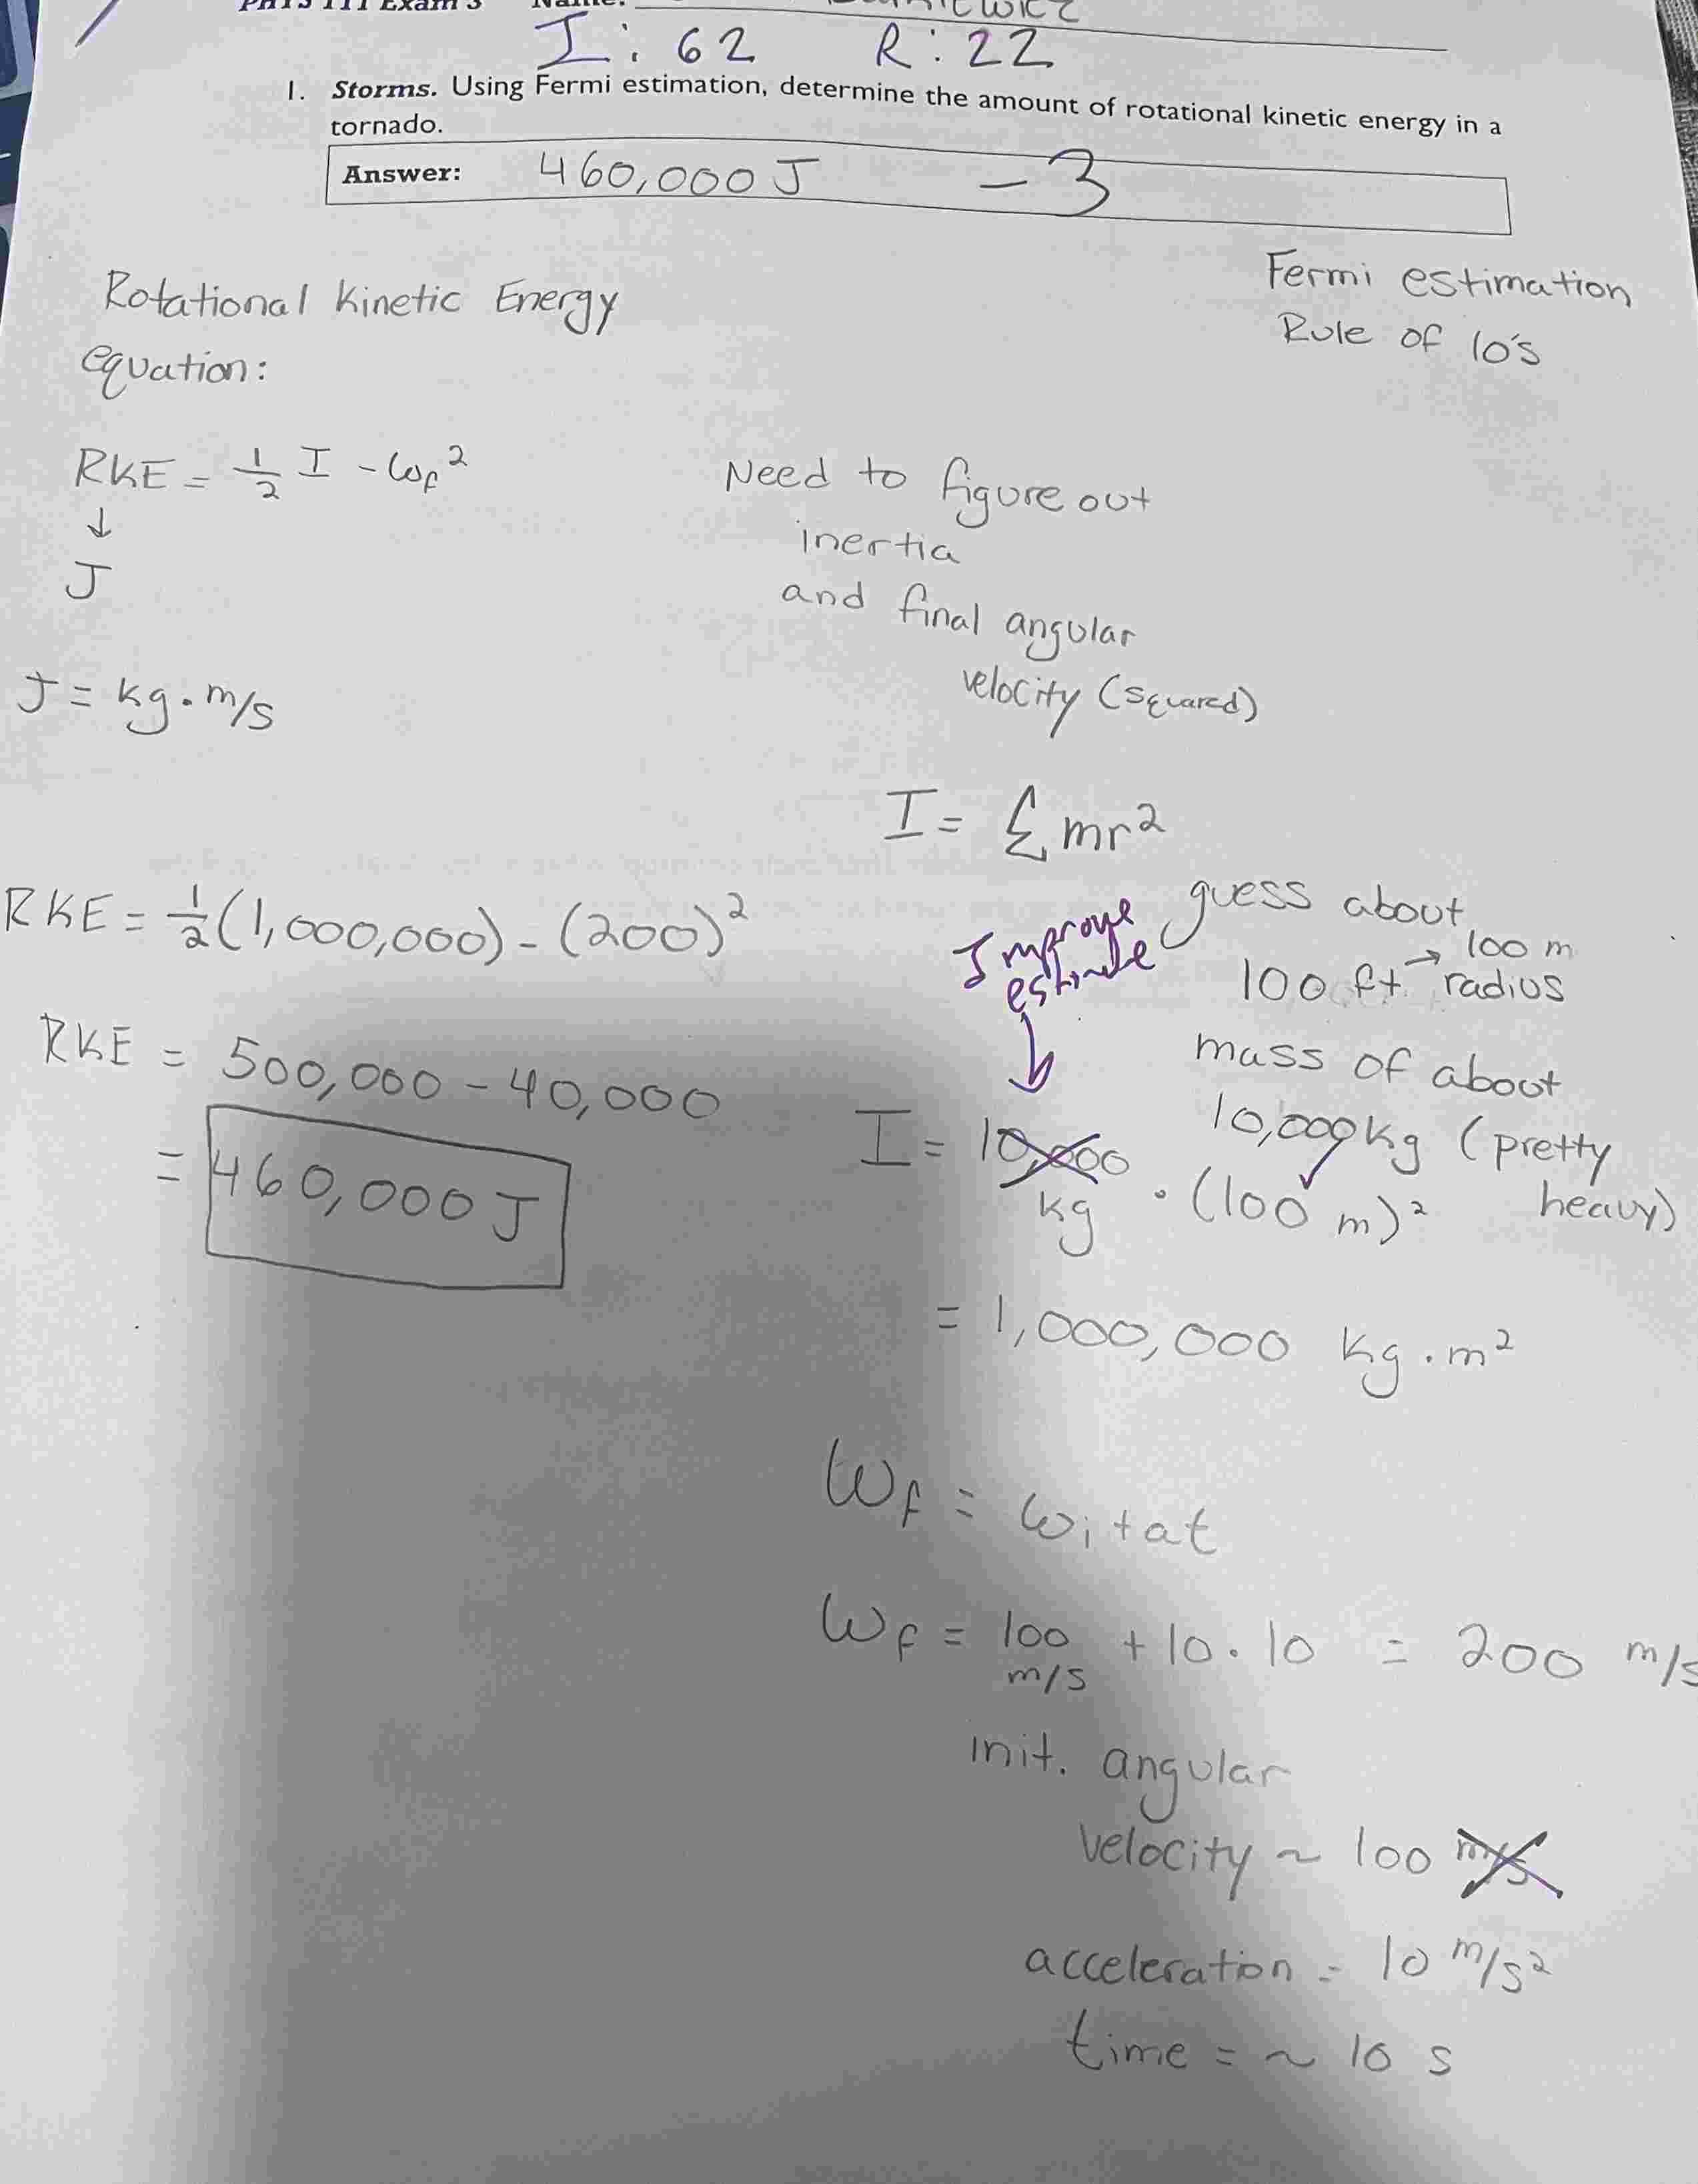 PHYS 111 Exam 3 Name:
I: 62 R: 22
1. Storms. Using Fermi estimation, determine the amount of rotational kinetic energy in a
tornado.
Answer: 460,000 J -3
Fermi estimation
Rule of 10's
Rotational Kinetic Energy
equation:
RKE = 1/2 I - ωf²
↓
J
J = kg · m/s
Need to figure out
inertia
and final angular
velocity (squared)
I = Σ mr²
guess about
100 ft → 100 m
radius
mass of about
10,000 kg (pretty
heavy)
Improve
estimate
↓
I = 10,000 kg · (100 m)²
= 1,000,000 kg · m²
RKE = 1/2 (1,000,000) - (200)²
RKE = 500,000 - 40,000
= 460,000 J
ωf = ωi + at
ωf = 100 m/s + 10 · 10 = 200 m/s
init. angular
velocity ~ 100 m/s
acceleration = 10 m/s²
time = ~ 10 s